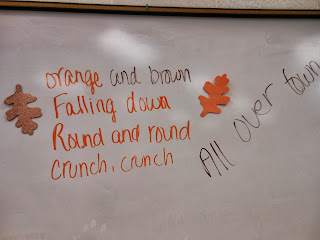 orange and brown
Falling down
Round and round
crunch, crunch
All over town